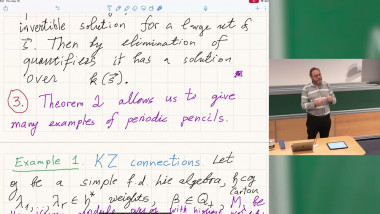 invertible solution for a large set of
s⃗. Then by elimination of
quantifiers it has a solution
over k(s⃗).
3. Theorem 2 allows us to give
many examples of periodic pencils.
Example 1. KZ connections. Let
g be a simple f.d. Lie algebra, h⊂g
Cartan
λ₁, λᵣ ∈ h* weights, β ∈ Q₊,
with highest